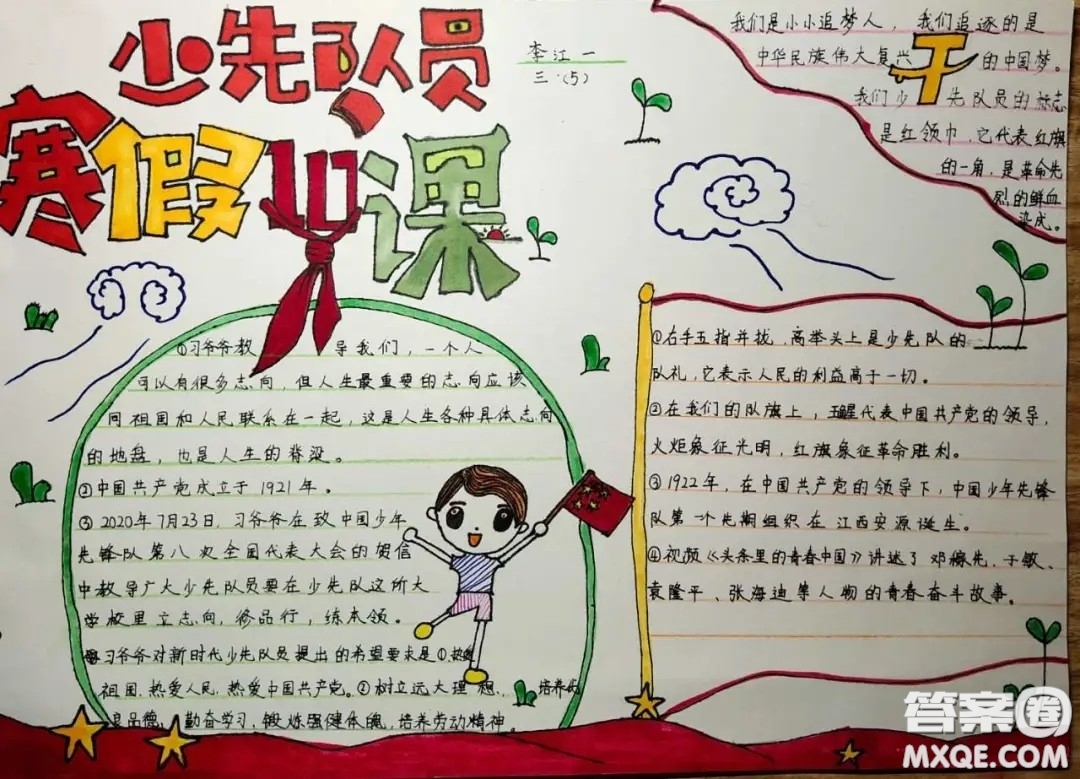 少先队员
寒假十课
李江一
三(5)
我们是小小追梦人，我们追逐的是
中华民族伟大复兴的中国梦。
我们少先队员的标志
是红领巾，它代表红旗
的一角，是革命先
烈的鲜血
染成。
①习爷爷教导我们，一个人
可以有很多志向，但人生最重要的志向应该
同祖国和人民联系在一起，这是人生各种具体志向
的地盘，也是人生的脊梁。
②中国共产党成立于1921年。
③2020年7月23日，习爷爷在致中国少年
先锋队第八次全国代表大会的贺信
中教导广大少先队员要在少先队这所大
学校里立志向，修品行，练本领。
习爷爷对新时代少先队员提出的希望要求是①热爱
祖国，热爱人民，热爱中国共产党。②树立远大理想、培养优
良品德，勤奋学习，锻炼强健体魄，培养劳动精神。
①右手五指并拢，高举头上是少先队的
队礼，它表示人民的利益高于一切。
②在我们的队旗上，五星代表中国共产党的领导，
火炬象征光明，红旗象征革命胜利。
③1922年，在中国共产党的领导下，中国少年先锋
队第一个先期组织在江西安源诞生。
④视频《头条里的青春中国》讲述了邓稼先、于敏、
袁隆平、张海迪等人物的青春奋斗故事。
答案圈
MXQE.COM